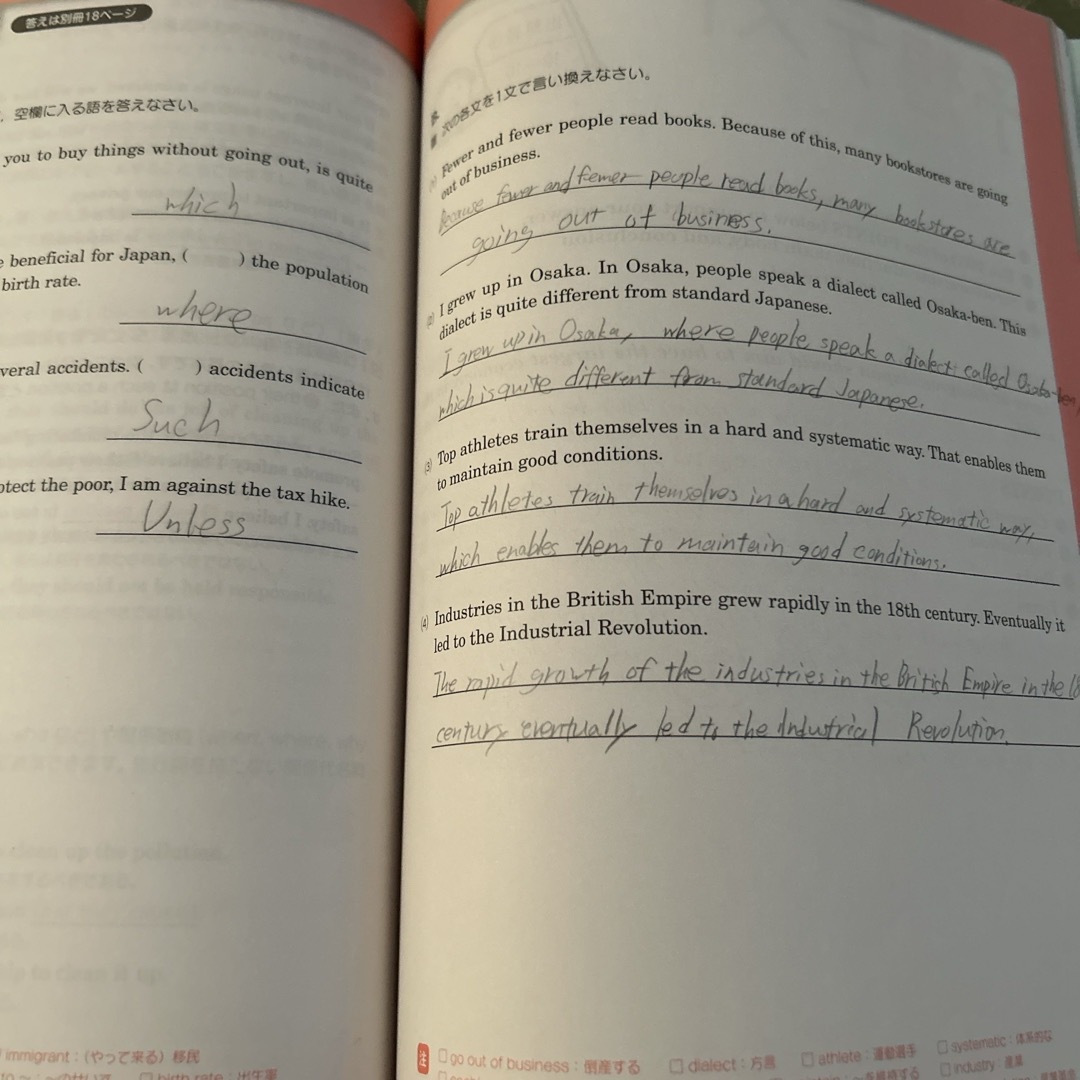 答えは別冊18ページ
空欄に入る語を答えなさい。
you to buy things without going out, is quite
which
beneficial for Japan, ( ) the population
birth rate.
where
veral accidents. ( ) accidents indicate
Such
otect the poor, I am against the tax hike.
Unless
immigrant：(やって来る) 移民
birth rate：出生率
次の各文を1文で言い換えなさい。
Fewer and fewer people read books. Because of this, many bookstores are going
out of business.
Because fewer and fewer people read books, many bookstores are
going out of business.
(2) I grew up in Osaka. In Osaka, people speak a dialect called Osaka-ben. This
dialect is quite different from standard Japanese.
I grew up in Osaka, where people speak a dialect called Osaka-ben,
which is quite different from standard Japanese.
(3) Top athletes train themselves in a hard and systematic way. That enables them
to maintain good conditions.
Top athletes train themselves in a hard and systematic way,
which enables them to maintain good conditions.
(4) Industries in the British Empire grew rapidly in the 18th century. Eventually it
led to the Industrial Revolution.
The rapid growth of the industries in the British Empire in the 18
century eventually led to the Industrial Revolution.
注 □ go out of business：倒産する □ dialect：方言 □ athlete：運動選手 □ systematic：体系的な
□ industry：産業